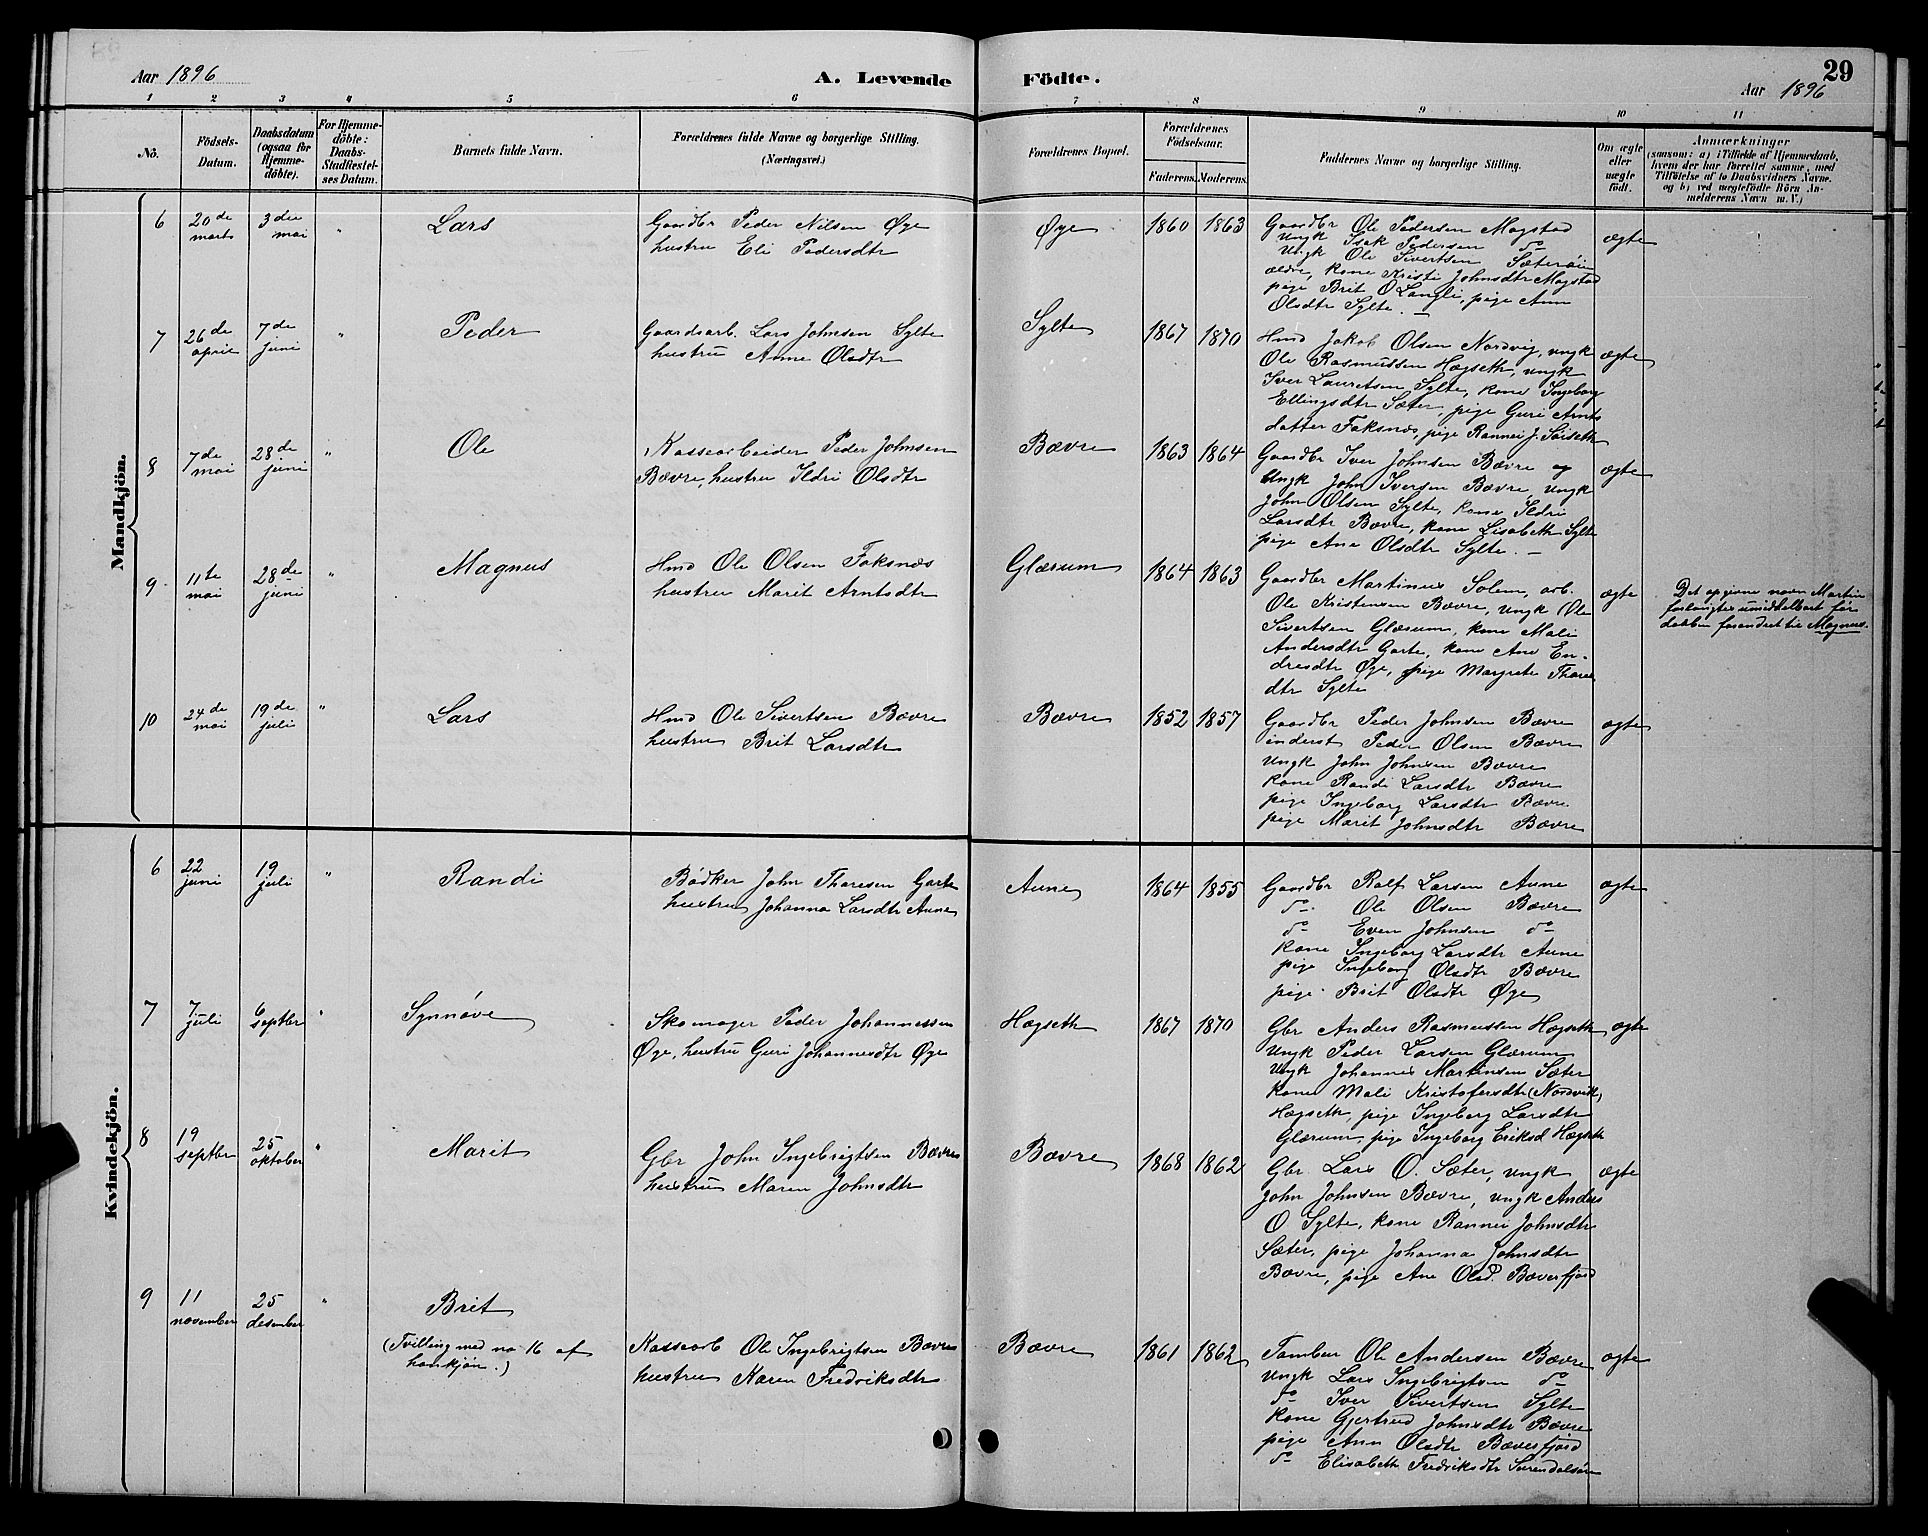 Aar 1896
A. Levende
Födte.
29
Aar 1896
1 2 3 4 5 6 7 8 9 10 11
Nö.
Födsels-
Datum.
Daabsdatum
(ogsaa for
Hjemme-
döbte).
For Hjemme-
döbte:
Daabs-
Stadfæstel-
ses Datum.
Barnets fulde Navn.
Forældrenes fulde Navne og borgerlige Stilling.
(Næringsvei.)
Forældrenes Bopæl.
Forældrenes
Födselsaar.
Faderens.
Moderens.
Faddernes Navne og borgerlige Stilling.
Om ægte
eller
uægte
födt.
Anmærkninger
(saasom: a) i Tilfælde af Hjemmedaab,
hvem der har forrettet samme, med
Tilföielse af to Daabsvidners Navne.
og b) ved uægtefödte Börn An-
melderens Navn m. V.)
Mandkjön.
6
20de
marts
3die
mai
"
Lars
Gaardbr Peder Nilsen Øye
hustru Eli Pedersdtr
Øye
1860
1863
Gaardbr Ole Pedersen Mogstad
Ungk Isak Pedersen do
Ungk Ole Sivertsen Sæterøien
ældre, kone Kristi Johnsdtr Mogstad
pige Brit O Langli, pige Ann
Olsdtr Sylte. —
ægte
7
26de
april
7de
juni
"
Peder
Gaardsarb. Lars Johnsen Sylte
hustru Anne Olsdtr
Sylte
1867
1870
Hmd Jakob Olsen Nordvig, ungk
Ole Rasmussen Hægseth, ungk
Iver Lauretsen Sylte, kone Ingeborg
Ellingsdtr Sæter, pige Guri Arnts
datter Foksnes, pige Rannei J. Søiseth
ægte
8
7de
mai
28de
juni
"
Ole
Kassearbeider Peder Johnsen
Bævre, hustru Ildri Olsdtr
Bævre
1863
1864
Gaardbr Iver Johnsen Bævre og
Ungk John Iversen Bævre, ungk
John Olsen Sylte, kone Ildri
Larsdtr Bævre, kone Lisabeth Sylte
pige Ane Olsdtr Sylte. —
ægte
9
11te
mai
28de
juni
"
Magnus
Hmd Ole Olsen Foksnes
hustru Marit Arntsdtr
Glærum
1864
1863
Gaardbr Martinus Solem, arb.
Ole Kristensen Bævre, ungk Ole
Sivertsen Glærum, kone Mali
Andersdtr Garte, kone Ane En-
dresdtr Øye, pige Margrete Thores
dtr Sylte
ægte
Det opgivne navn Martin
forlangtes umiddelbart før
daaben forandret til Magnus.
10
24de
mai
19de
juli
"
Lars
Hmd Ole Sivertsen Bævre
hustru Brit Larsdtr
Bævre
1852
1857
Gaardbr Peder Johnsen Bævre
inderst Peder Olsen Bævre
Ungk John Johnsen Bævre
kone Randi Larsdtr Bævre
pige Ingeborg Larsdtr Bævre
pige Marit Johnsdtr Bævre
ægte
Kvindekjön.
6
22
juni
19
juli
"
Randi
Bødker John Thoresen Garte
hustru Johanna Larsdtr Aune
Aune
1864
1855
Gaardbr Ralf Larsen Aune
do Ole Olsen Bævre
do Even Johnsen do
kone Ingeborg Larsdtr Aune
pige Ingeborg Olsdtr Bævre
pige Brit Olsdtr Øye
ægte
7
7
juli
6
septbr
"
Synnøve
Skomager Peder Johannessen
Øye, hustru Guri Johannesdtr Øye
Hægseth
1867
1870
Gbr Anders Rasmussen Hægseth
Ungk Peder Larsen Glærum
Ungk Johannes Martinsen Sæter
kone Mali Kristofersdtr (Nordvik)
Hægseth, pige Ingeborg Larsdtr
Glærum, pige Ingeborg Eriksd Hægseth
ægte
8
19
septbr
25
oktober
"
Marit
Gbr John Ingebrigtsen Bævre
hustru Maren Johnsdtr
Bævre
1868
1862
Gbr. Lars O. Sæter, ungk
John Johnsen Bævre, ungk Anders
O Sylte, kone Rannei Johnsdtr
Sæter, pige Johanna Johnsdtr
Bævre, pige Ane Olsd. Bæverfjord
ægte
9
11
november
25
desember
"
Brit
(Tvilling med no 16 af
hankjøn.)
Kassearb Ole Ingebrigtsen Bævre
hustru Karen Fredriksdtr
Bævre
1861
1862
Tambur Ole Andersen Bævre
Ungk Lars Ingebrigtsen do
do Iver Sivertsen Sylte
kone Gjertrud Johnsdtr Bævre
pige Ann Olsdtr Bæverfjord
do Elisabeth Fredriksdtr Surendalsøren
ægte